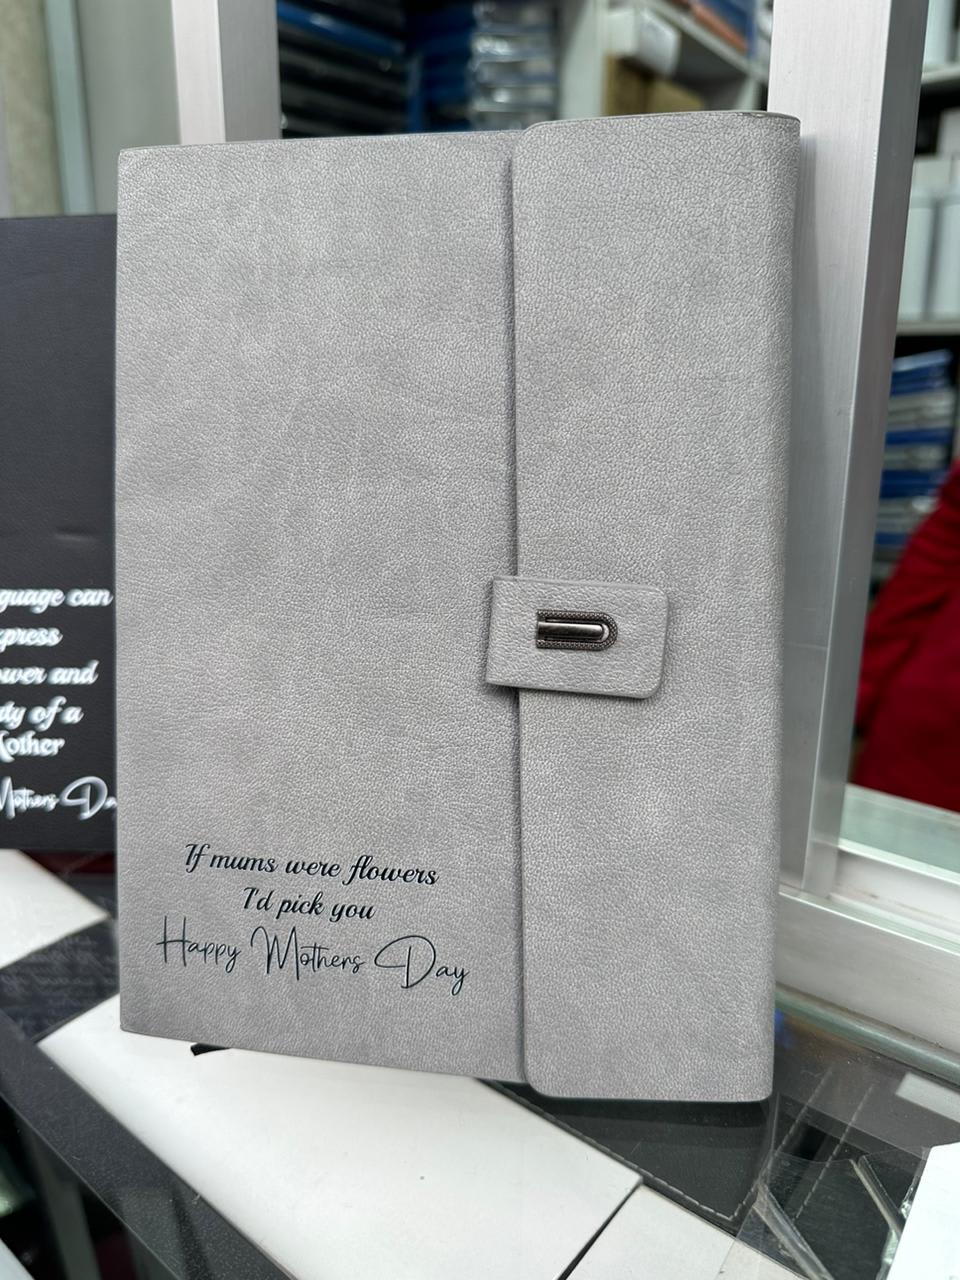 guage can
xpress
wer and
ty of a
other
Mothers Da
If mums were flowers
I'd pick you
Happy Mothers Day